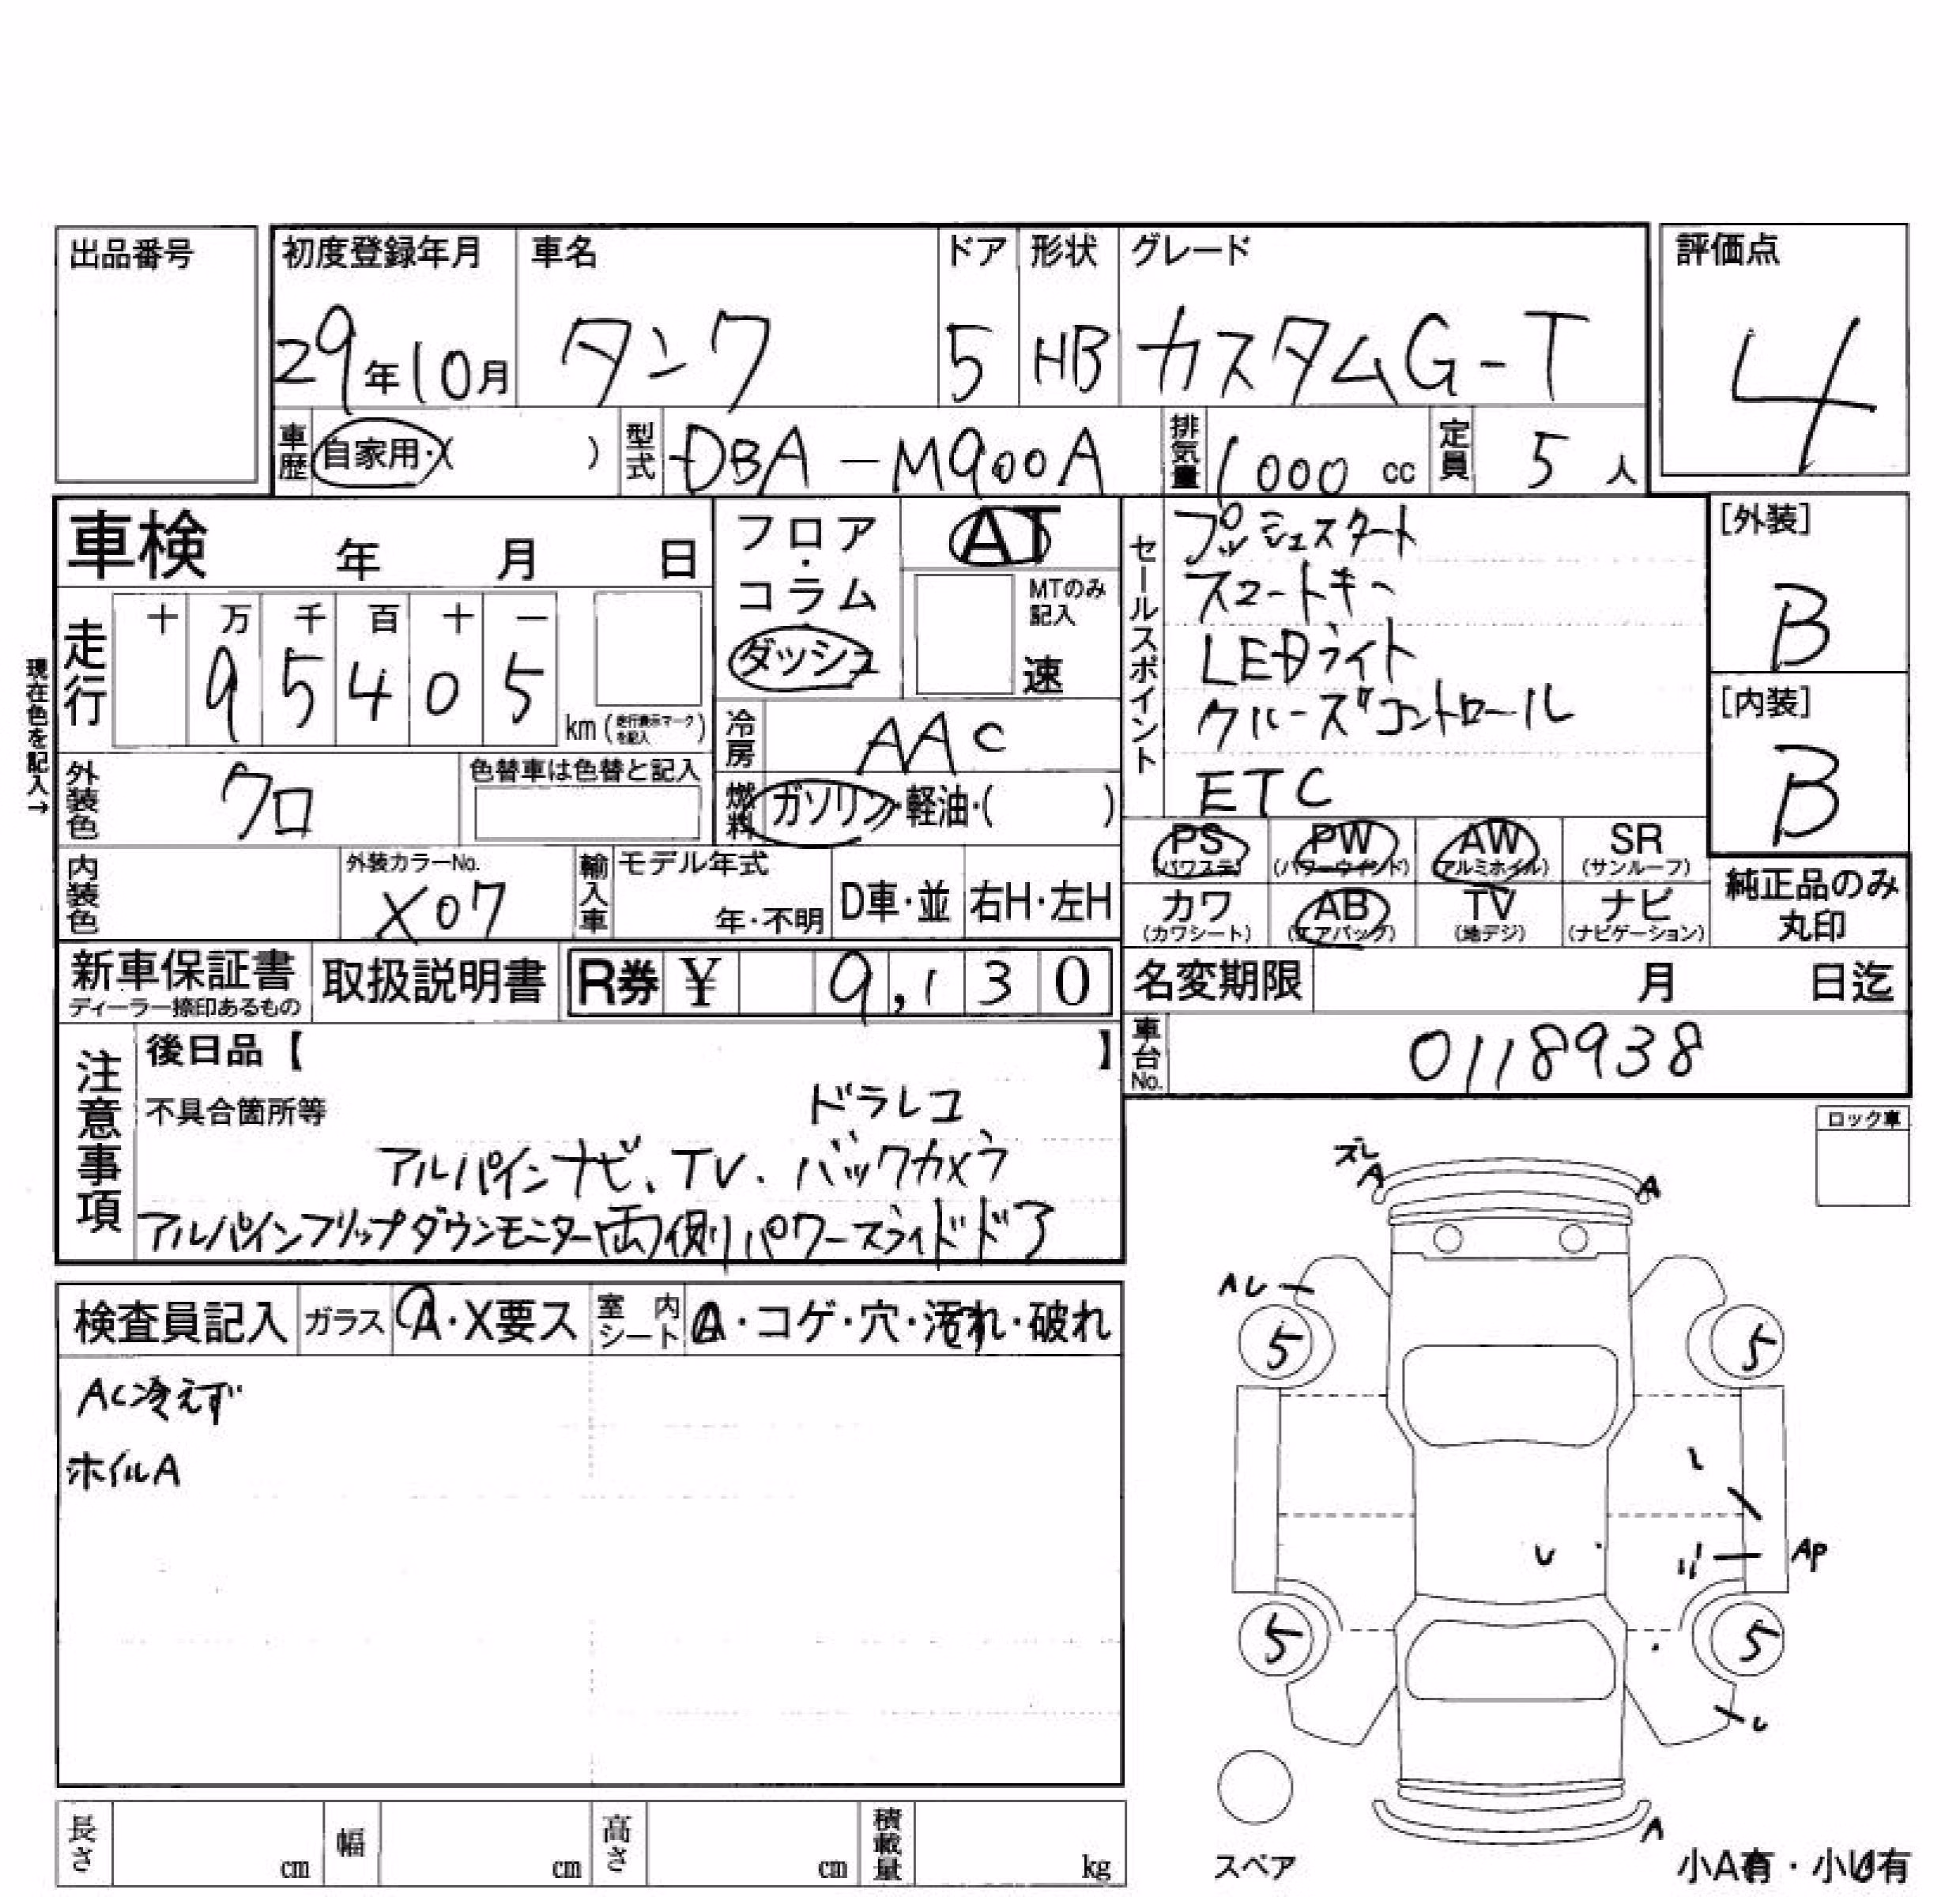 出品番号
初度登録年月 車名 ドア 形状 グレード 評価点
29年10月 タンク 5 HB カスタムG-T 4
車歴 自家用・( ) 型式 DBA-M900A 排気量 1000 cc 定員 5 人
車検 年 月 日
フロア・コラム ダッシュ
AT
MTのみ記入
速
走行 十 万 千 百 十 一
9 5 4 0 5 km (走行表示マークを記入)
現在色を記入→
冷房 AAC
燃料 ガソリン・軽油・( )
外装色 クロ 色替車は色替と記入
内装色 外装カラーNo. X07 輸入車 モデル年式 年・不明 D車・並 右H・左H
セールスポイント
プッシュスタート
スマートキー
LEDライト
クルーズコントロール
ETC
[外装]
B
[内装]
B
PS (パワステ) PW (パワーウインド) AW (アルミホイル) SR (サンルーフ)
カワ (カワシート) AB (エアバッグ) TV (地デジ) ナビ (ナビゲーション)
純正品のみ丸印
新車保証書 ディーラー捺印あるもの 取扱説明書 R券 ¥ 9,130
名変期限 月 日迄
車台No. 0118938
注意事項
後日品【 】
不具合箇所等 ドラレコ
アルパインナビ、TV、バックカメラ
アルパインフリップダウンモニター両側パワースライドドア
検査員記入 ガラス A・X要ス 室内シート A・コゲ・穴・汚れ・破れ
AC冷えず
ホイルA
ロック車
ズレ
A A
AU
5 5
U
AP
5 5
U
A
スペア
小A有・小U有
長さ cm 幅 cm 高さ cm 積載量 kg